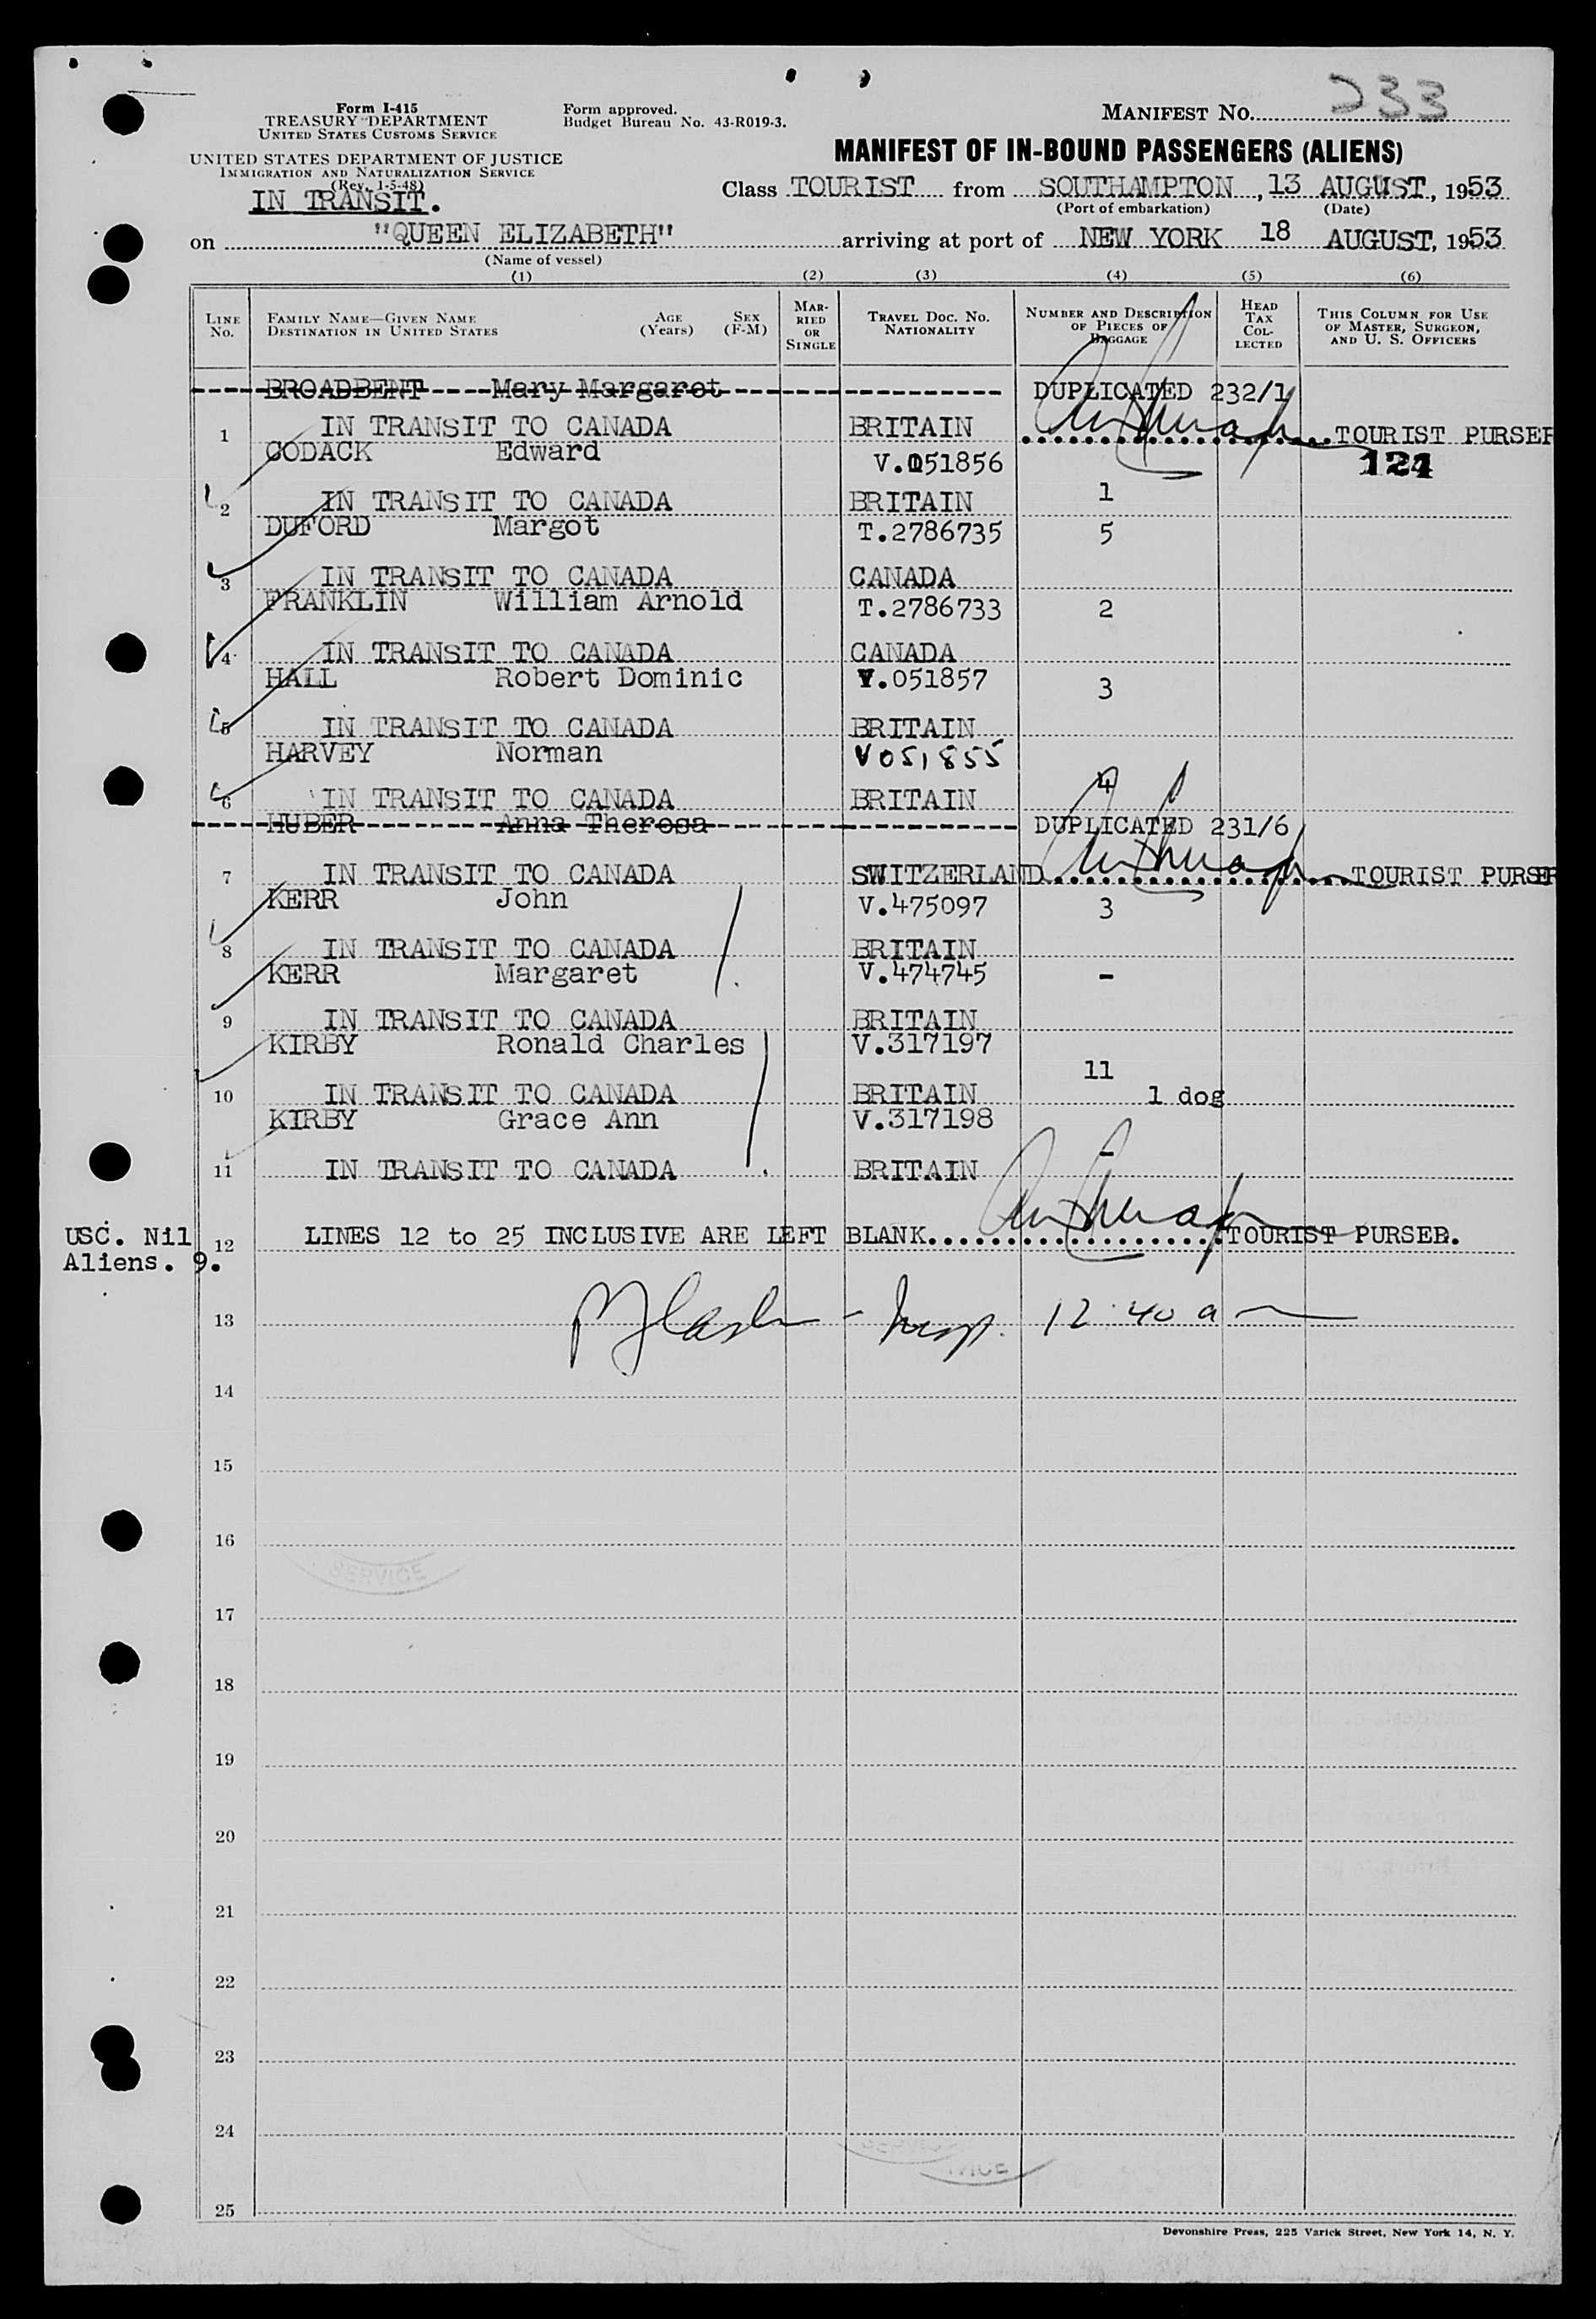 Form I-415
TREASURY DEPARTMENT
UNITED STATES CUSTOMS SERVICE
UNITED STATES DEPARTMENT OF JUSTICE
IMMIGRATION AND NATURALIZATION SERVICE
(Rev. 1-5-48)
IN TRANSIT.
Form approved.
Budget Bureau No. 43-R019-3.
MANIFEST NO. 233
MANIFEST OF IN-BOUND PASSENGERS (ALIENS)
Class TOURIST from SOUTHAMPTON, 13 AUGUST, 1953
(Port of embarkation) (Date)
on "QUEEN ELIZABETH" arriving at port of NEW YORK 18 AUGUST, 1953
(Name of vessel)
(1) (2) (3) (4) (5) (6)
LINE NO.
FAMILY NAME—GIVEN NAME
DESTINATION IN UNITED STATES
AGE (Years)
SEX (F-M)
MARRIED OR SINGLE
TRAVEL DOC. NO. NATIONALITY
NUMBER AND DESCRIPTION OF PIECES OF BAGGAGE
HEAD TAX COLLECTED
THIS COLUMN FOR USE OF MASTER, SURGEON, AND U. S. OFFICERS
BROADBENT Mary Margaret DUPLICATED 232/1
1 IN TRANSIT TO CANADA BRITAIN TOURIST PURSER
CODACK Edward V.051856 124
2 IN TRANSIT TO CANADA BRITAIN 1
DUFORD Margot T.2786735 5
3 IN TRANSIT TO CANADA CANADA
FRANKLIN William Arnold T.2786733 2
4 IN TRANSIT TO CANADA CANADA
HALL Robert Dominic V.051857 3
5 IN TRANSIT TO CANADA BRITAIN
HARVEY Norman V051855
6 IN TRANSIT TO CANADA BRITAIN 4
HUBER Anna Theresa DUPLICATED 231/6
7 IN TRANSIT TO CANADA SWITZERLAND TOURIST PURSER
KERR John V.475097 3
8 IN TRANSIT TO CANADA BRITAIN
KERR Margaret V.474745 -
9 IN TRANSIT TO CANADA BRITAIN
KIRBY Ronald Charles V.317197
11
10 IN TRANSIT TO CANADA BRITAIN 1 dog
KIRBY Grace Ann V.317198
-
11 IN TRANSIT TO CANADA BRITAIN
USC. Nil
Aliens. 9.
12 LINES 12 to 25 INCLUSIVE ARE LEFT BLANK TOURIST PURSER.
13 Insp. 12:40 a
14
15
16
SERVICE
17
18
19
20
21
22
23
24
25
Devonshire Press, 225 Varick Street, New York 14, N. Y.